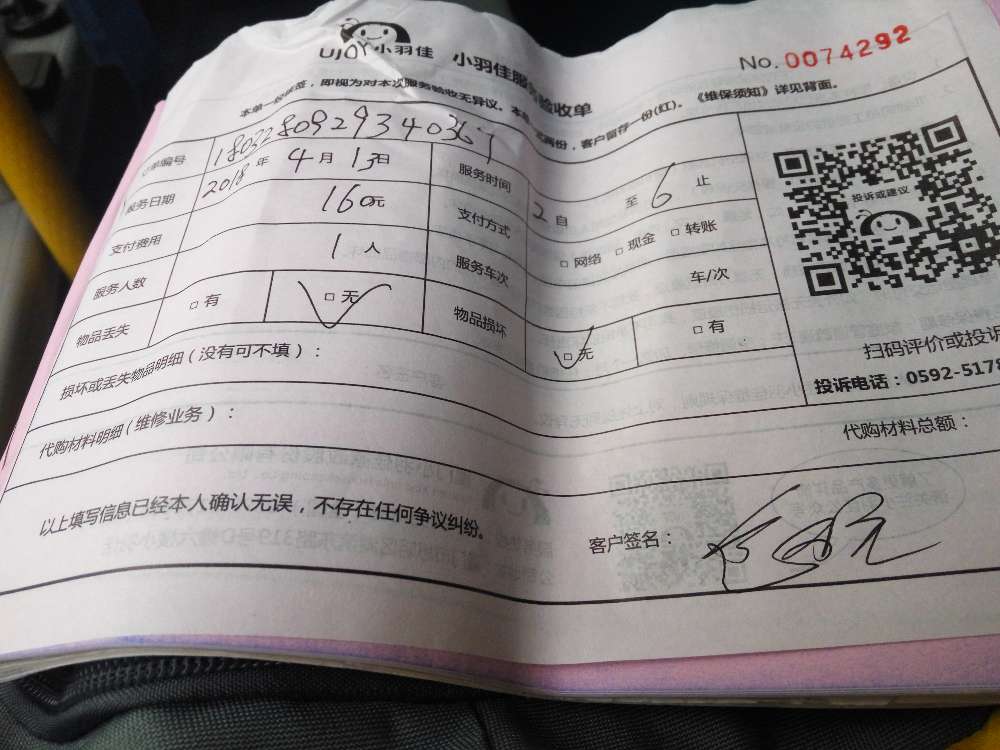 UJOY小羽佳 小羽佳服务验收单
No.0074292
本单一经依签，即视为对本次服务验收无异议。本单一式两份，客户留存一份(红)。《维保须知》详见背面。
订单编号
服务日期 2018年4月13日 服务时间 2自 至6止
支付费用 160元 支付方式 □网络 □现金 □转账
服务人数 1人 服务车次 车/次
物品丢失 □有 □无 物品损坏 □无 □有
损坏或丢失物品明细（没有可不填）：
代购材料明细（维修业务）： 代购材料总额：
以上填写信息已经本人确认无误，不存在任何争议纠纷。
客户签名：
投诉或建议
扫码评价或投诉
投诉电话：0592-5178